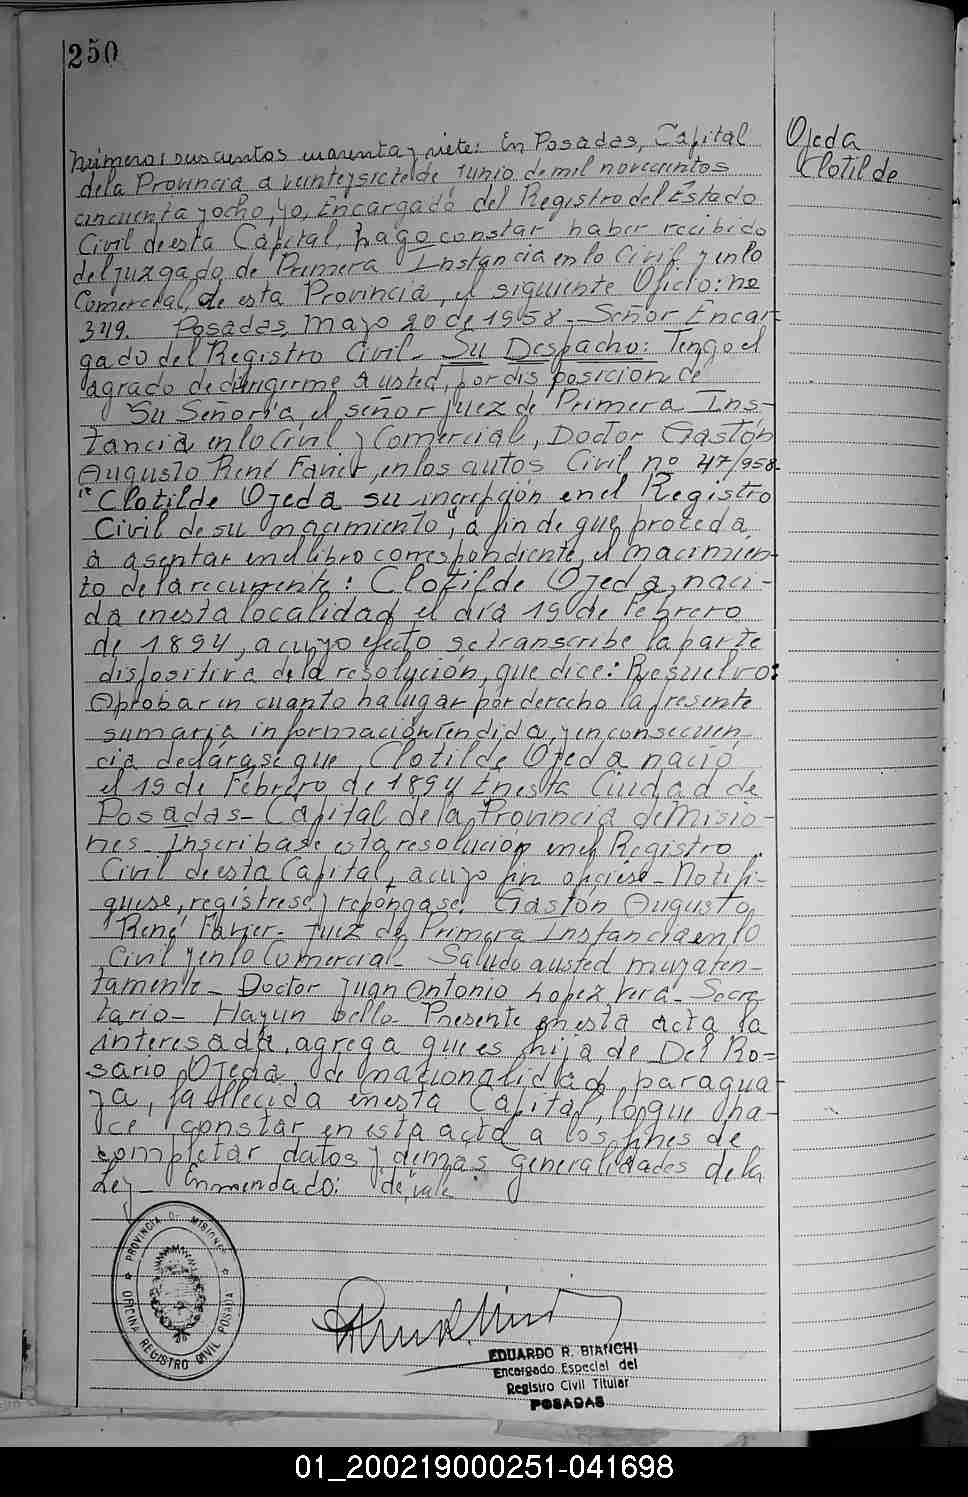 250
Ojeda
Clotilde
número: doscientos cuarenta y siete: En Posadas, Capital
de la Provincia a veintisiete de Junio de mil novecientos
cincuenta y ocho, yo, Encargado del Registro del Estado
Civil de esta Capital, hago constar haber recibido
del juzgado de Primera Instancia en lo Civil y en lo
Comercial, de esta Provincia, el siguiente Oficio: no
349. Posadas, Mayo 20 de 1958 - Señor Encar-
gado del Registro Civil - Su Despacho: Tengo el
agrado de dirigirme a usted, por disposición de
Su Señoría, el señor Juez de Primera Ins-
tancia en lo Civil y Comercial, Doctor Gastón
Augusto René Favier, en los autos Civil no 47/958.
"Clotilde Ojeda su incripción en el Registro
Civil de su nacimiento", a fin de que proceda
a asentar en el libro correspondiente, el nacimien-
to de la recurrente: Clotilde Ojeda, naci-
da en esta localidad el día 19 de Febrero
de 1894, a cuyo efecto se transcribe la parte
dispositiva de la resolución, que dice: Resuelvo:
Aprobar en cuanto ha lugar por derecho la presente
sumaria información rendida, y en consecuen-
cia declárase que Clotilde Ojeda nació
el 19 de Febrero de 1894 en esta Ciudad de
Posadas - Capital de la Provincia de Misio-
nes - Inscribase esta resolución en el Registro
Civil de esta Capital, a cuyo fin ofíciese - Notifí-
quese, regístrese y repóngase. Gastón Augusto
René Favier - Juez de Primera Instancia en lo
Civil y en lo Comercial - Saludo a usted muy aten-
tamente - Doctor Juan Antonio Lopez Vera - Secre
tario - Hay un sello - Presente en esta acta, la
interesada, agrega que es hija de Del Ro-
sario Ojeda, de nacionalidad paragua-
ya, fallecida en esta Capital, lo que ha-
ce constar en esta acta a los fines de
completar datos y demás generalidades de la
Ley - Enmendado: de, vale
PROVINCIA DE MISIONES
OFICINA REGISTRO CIVIL POSADAS
EDUARDO R. BIANCHI
Encargado Especial del
Registro Civil Titular
POSADAS
01_200219000251-041698